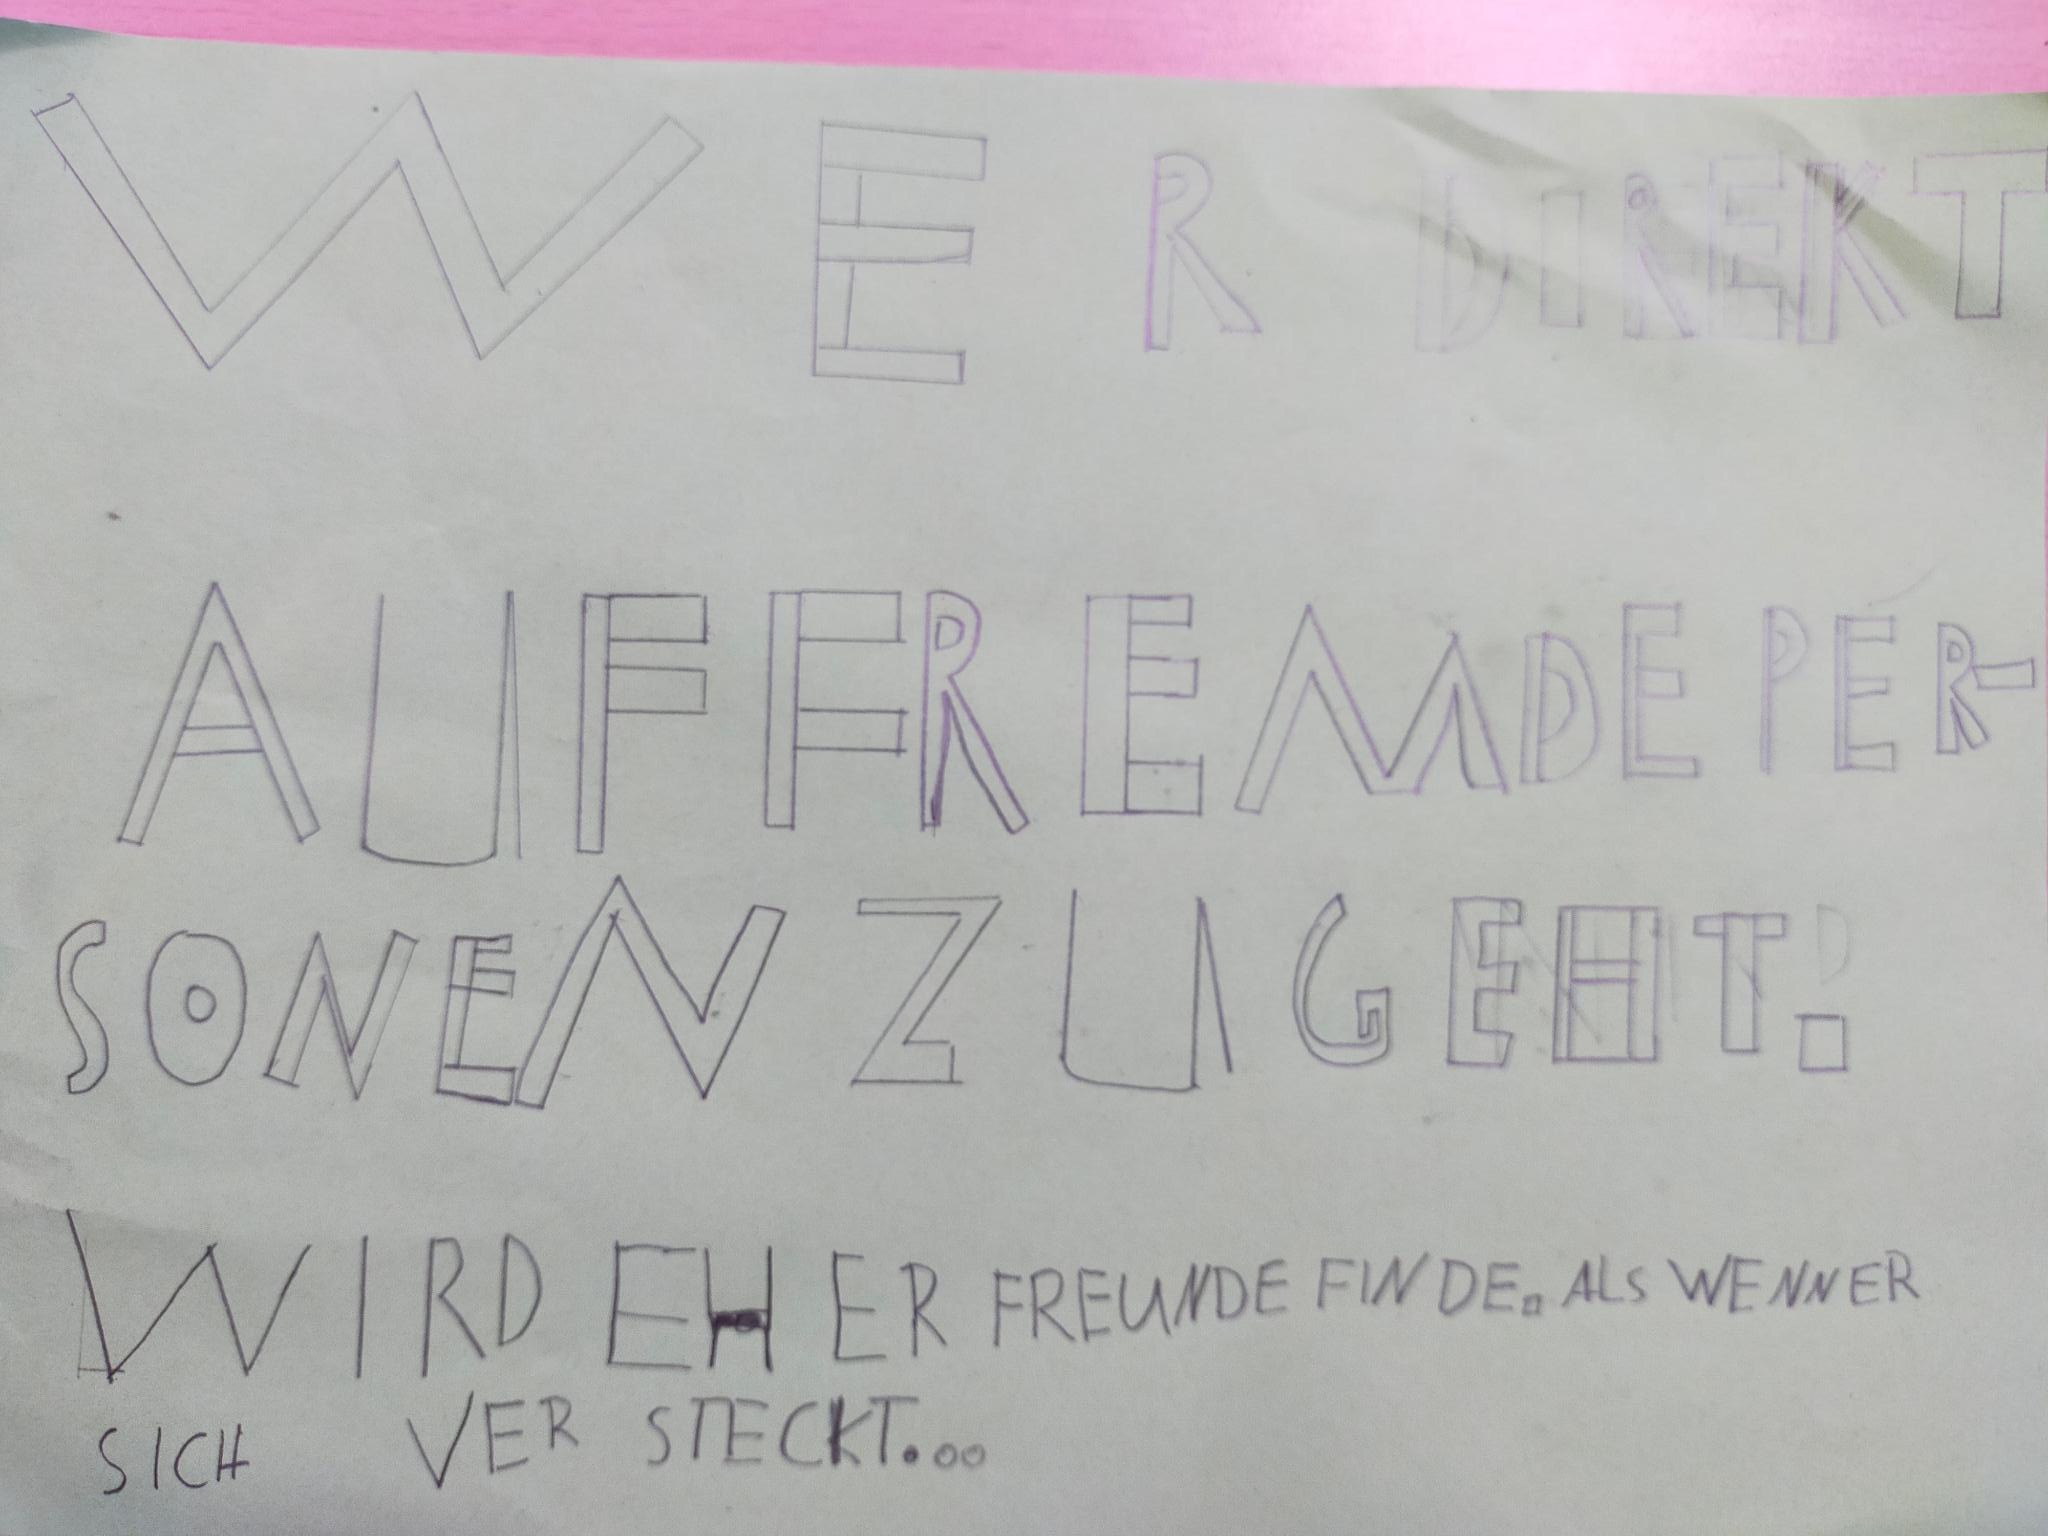 WER DIREKT
AUF FREMDE PER-
SONEN ZU GEHT.
WIRD EHER FREUNDE FINDE. ALS WENN ER
SICH VER STECKT...